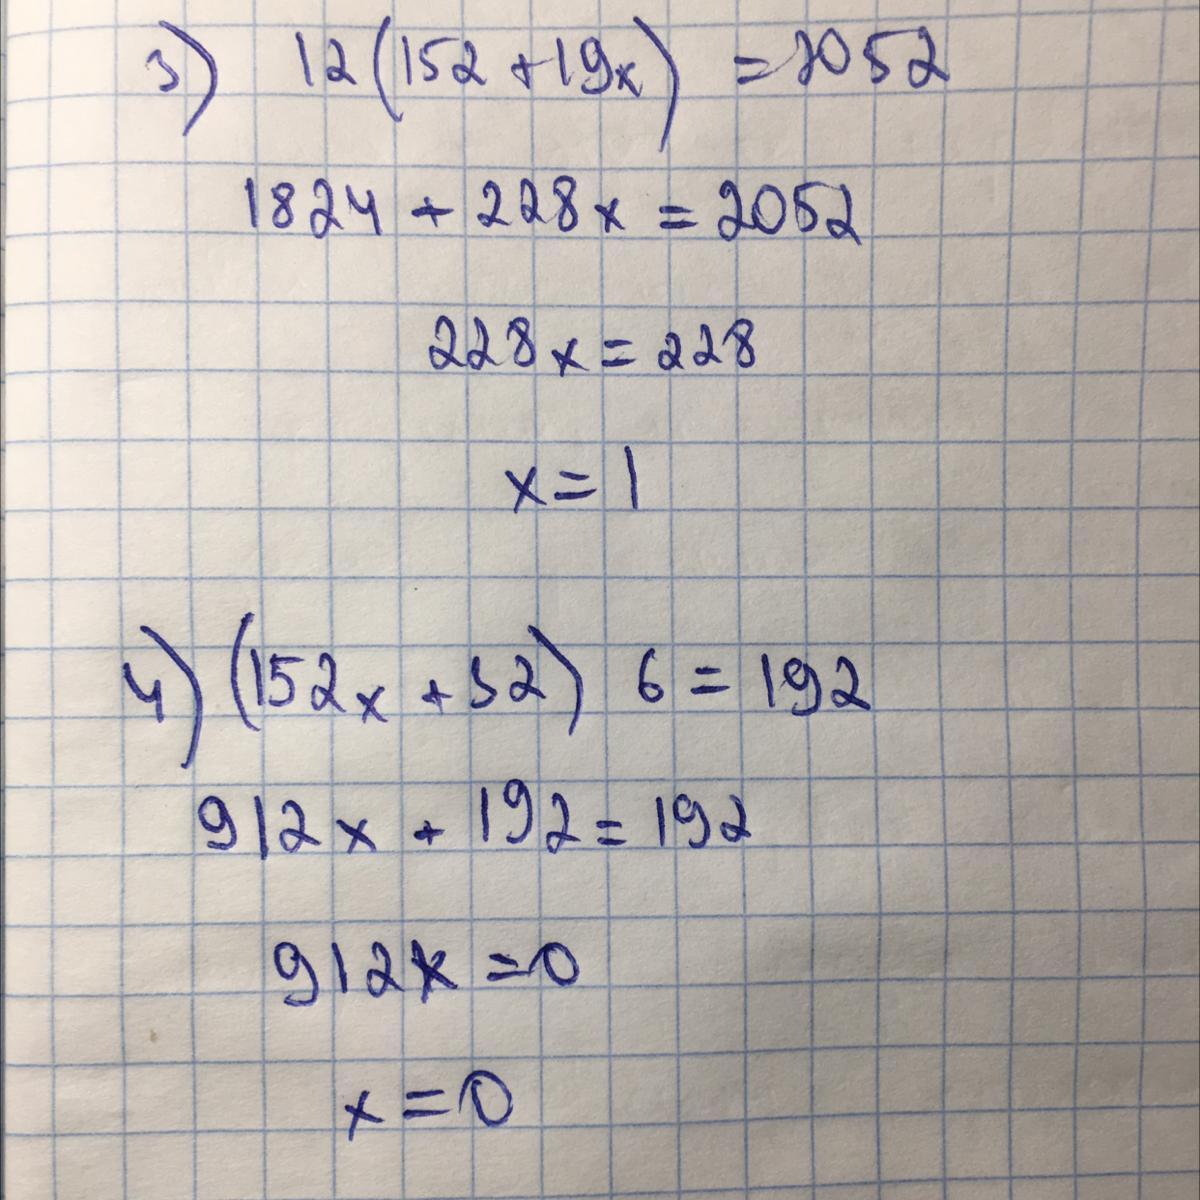 3) 12(152+19x) = 2052
1824 + 228x = 2052
228x = 228
x = 1
4) (152x + 32) 6 = 192
912x + 192 = 192
912x = 0
x = 0